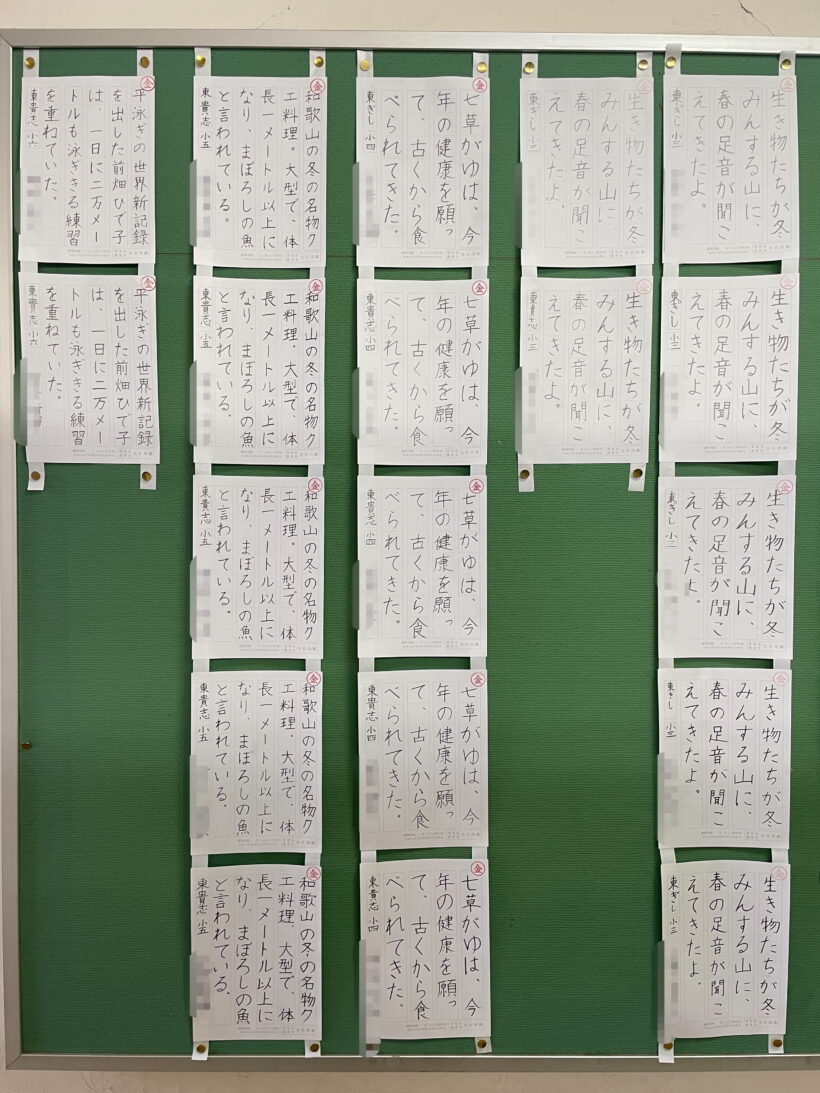 金
生き物たちが冬
みんする山に、
春の足音が聞こ
えてきたよ。
東ぎし 小三
金
生き物たちが冬
みんする山に、
春の足音が聞こ
えてきたよ。
東ぎし 小三
金
生き物たちが冬
みんする山に、
春の足音が聞こ
えてきたよ。
東ぎし 小三
金
生き物たちが冬
みんする山に、
春の足音が聞こ
えてきたよ。
東ぎし 小三
金
生き物たちが冬
みんする山に、
春の足音が聞こ
えてきたよ。
東ぎし 小三
金
生き物たちが冬
みんする山に、
春の足音が聞こ
えてきたよ。
東ぎし 小三
金
生き物たちが冬
みんする山に、
春の足音が聞こ
えてきたよ。
東貴志 小三
金
七草がゆは、今
年の健康を願っ
て、古くから食
べられてきた。
東ぎし 小四
金
七草がゆは、今
年の健康を願っ
て、古くから食
べられてきた。
東貴志 小四
金
七草がゆは、今
年の健康を願っ
て、古くから食
べられてきた。
東貴志 小四
金
七草がゆは、今
年の健康を願っ
て、古くから食
べられてきた。
東貴志 小四
金
七草がゆは、今
年の健康を願っ
て、古くから食
べられてきた。
東貴志 小四
金
和歌山の冬の名物ク
エ料理。大型で、体
長一メートル以上に
なり、まぼろしの魚
と言われている。
東貴志 小五
金
和歌山の冬の名物ク
エ料理。大型で、体
長一メートル以上に
なり、まぼろしの魚
と言われている。
東貴志 小五
金
和歌山の冬の名物ク
エ料理。大型で、体
長一メートル以上に
なり、まぼろしの魚
と言われている。
東貴志 小五
金
和歌山の冬の名物ク
エ料理。大型で、体
長一メートル以上に
なり、まぼろしの魚
と言われている。
東貴志 小五
金
和歌山の冬の名物ク
エ料理。大型で、体
長一メートル以上に
なり、まぼろしの魚
と言われている。
東貴志 小五
金
平泳ぎの世界新記録
を出した前畑ひで子
は、一日に二万メー
トルも泳ぎきる練習
を重ねていた。
東貴志 小六
金
平泳ぎの世界新記録
を出した前畑ひで子
は、一日に二万メー
トルも泳ぎきる練習
を重ねていた。
東貴志 小六